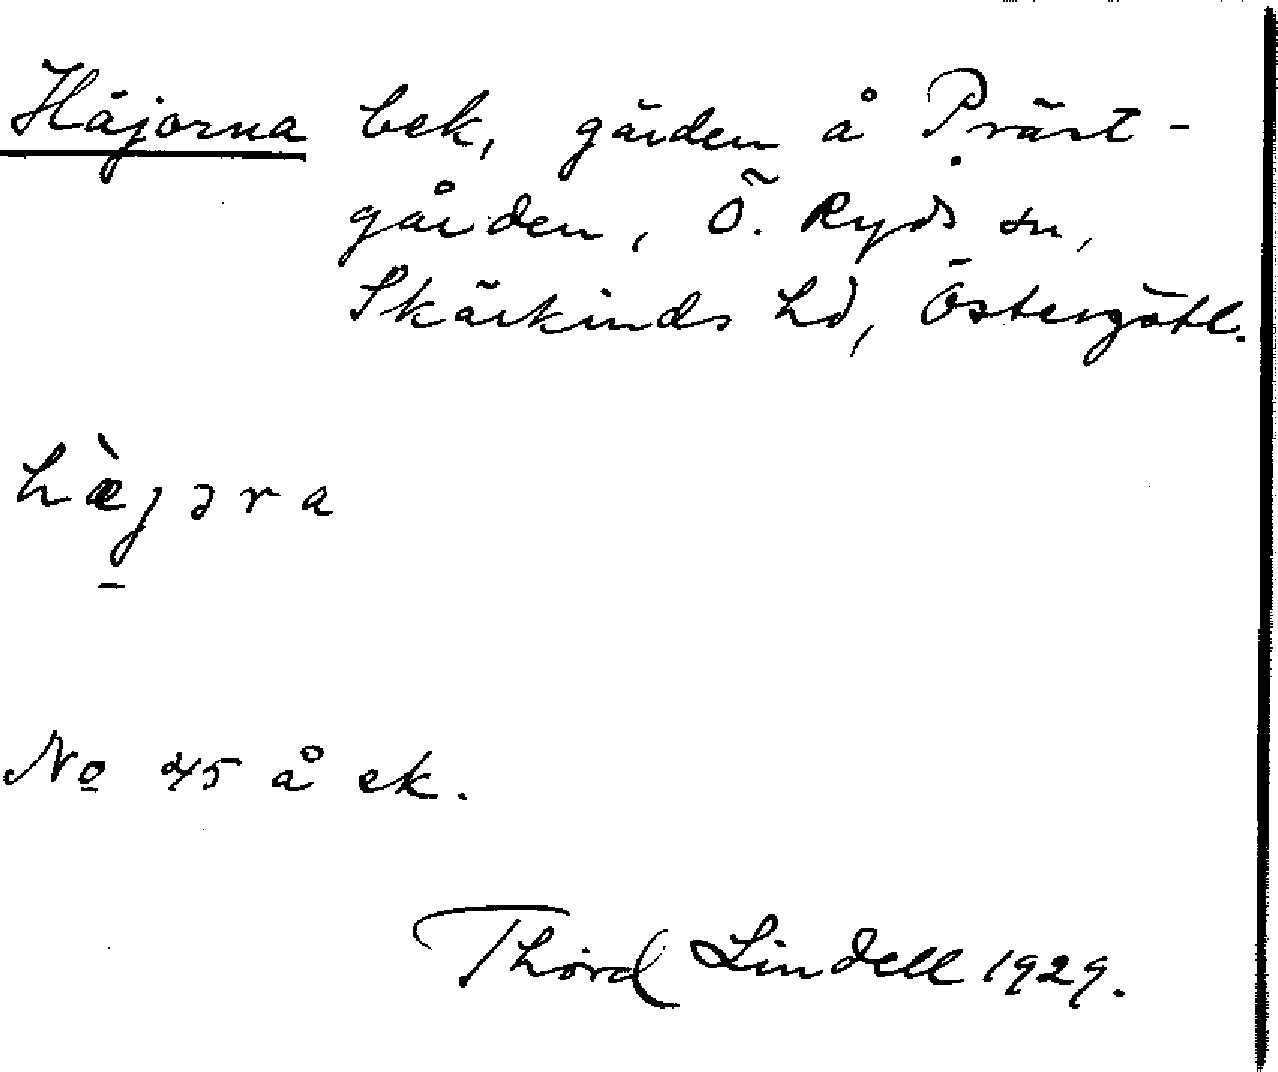 Häjorna bek, gärden å Präst-
gården, Ö. Ryds sn,
Skärkinds hd, Östergötl.
hæ̀jəra
No 45 å ek.
Thord Lindell 1929.